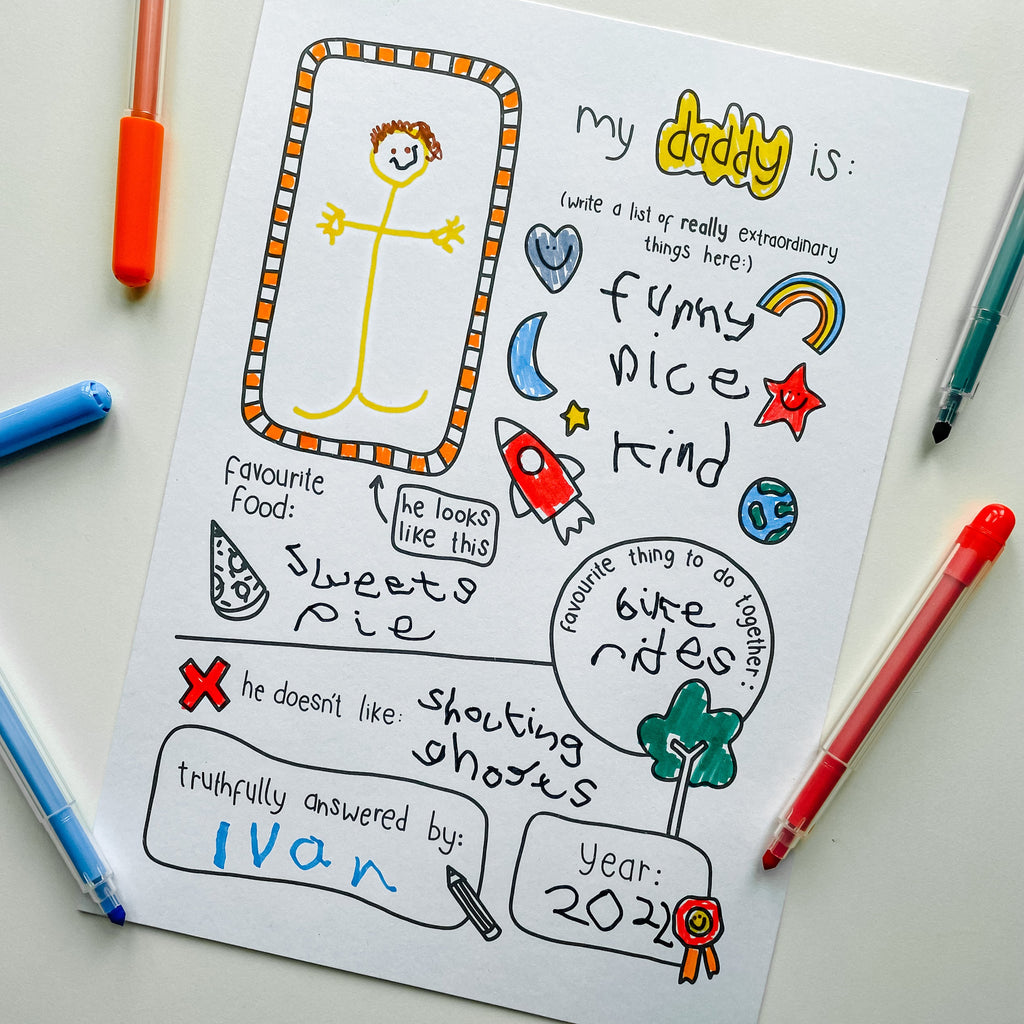 my daddy is:
(write a list of really extraordinary
things here:)
funny
nice
kind
he looks
like this
favourite
food:
sweets
pie
favourite thing to do together:
bike
rides
he doesn't like:
shouting
ghosts
truthfully answered by:
Ivan
year:
2022